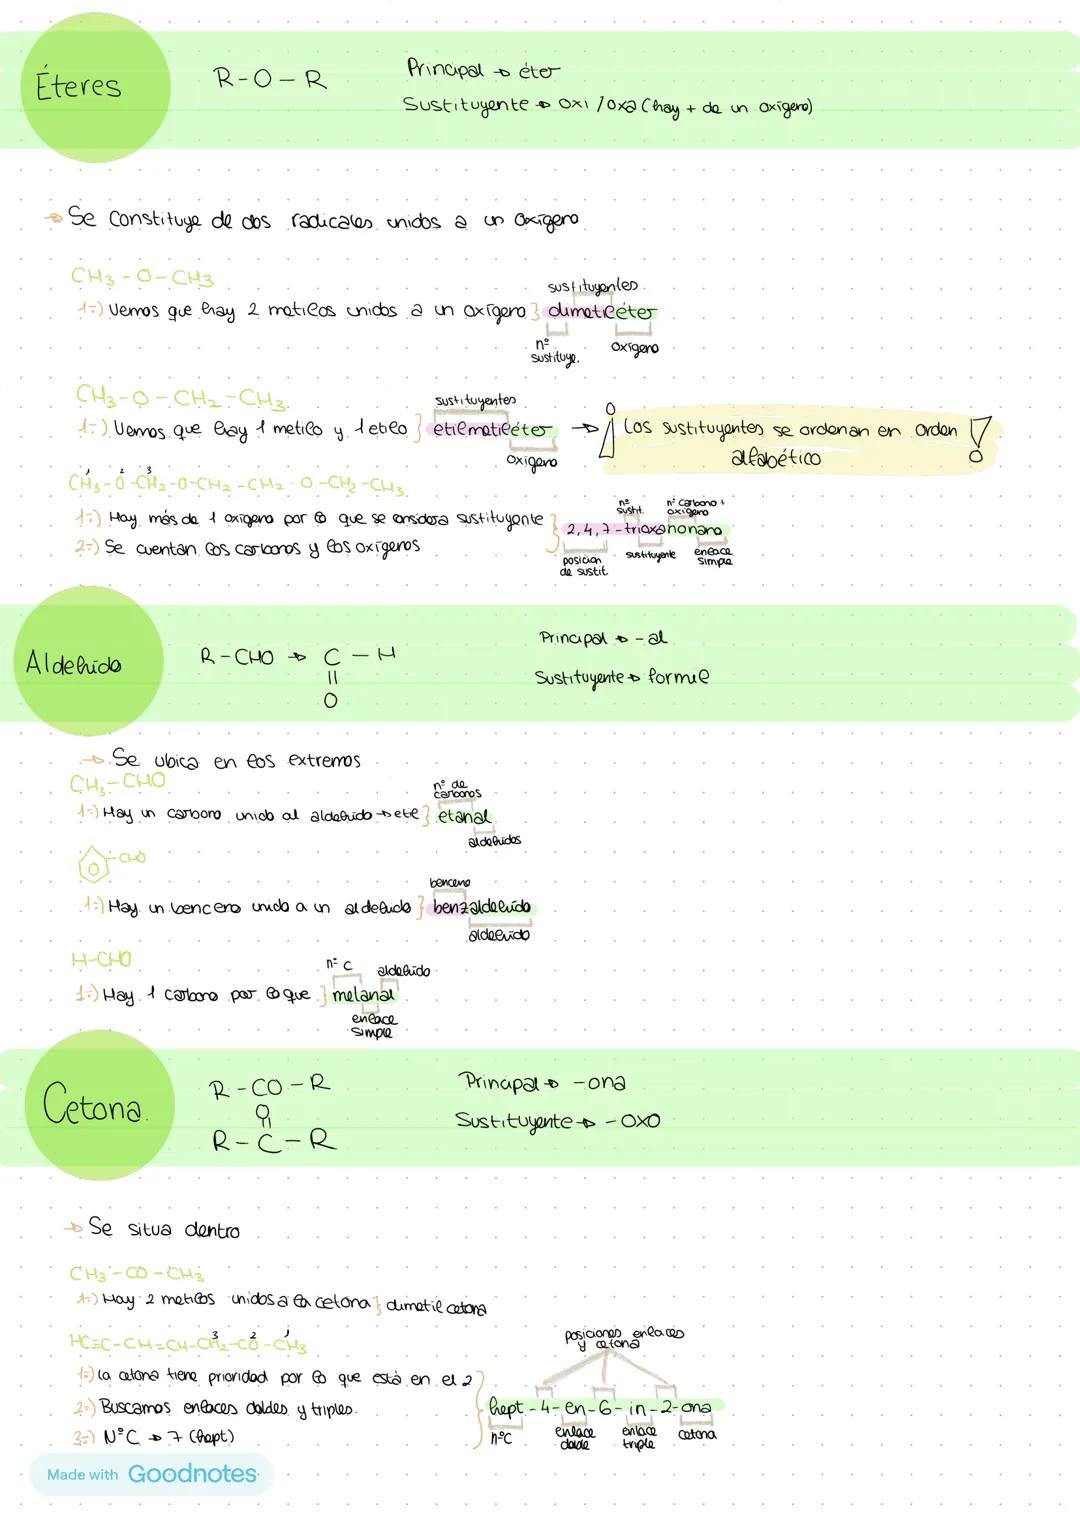 Éteres
R-O-R
Principal → éter
Sustituyente → oxi / oxa (hay + de un oxígeno)
→ Se constituye de dos radicales unidos a un oxígeno
CH3-O-CH3
1º) Vemos que hay 2 metilos unidos a un oxígeno } dimetiléter
sustituyentes
nº sustituye.
oxígeno
CH3-O-CH2-CH3
1º) Vemos que hay 1 metilo y 1 etilo } etilmetiléter →
sustituyentes
oxígeno
¡Los sustituyentes se ordenan en orden
alfabético!
1 2 3
CH3-O-CH2-O-CH2-CH2-O-CH2-CH3
1º) Hay más de 1 oxígeno por lo que se considera sustituyente
2º) Se cuentan los carbonos y los oxígenos
} 2,4,7-trioxanonano
nº sustit.
nº carbono + oxígeno
posicion de sustit.
sustituyente
enlace simple
Aldehido
R-CHO → C-H
=
O
Principal → -al
Sustituyente → formil
→ Se ubica en los extremos
CH3-CHO
1º) Hay un carbono unido al aldehido → etl } etanal
nº de carbonos
aldehidos
-CHO
1º) Hay un benceno unido a un aldehido } benzaldehido
benceno
aldehido
H-CHO
1º) Hay 1 carbono por lo que } metanal
nº C
aldehido
enlace simple
Cetona
R-CO-R
O
=
R-C-R
Principal → -ona
Sustituyente → -oxo
→ Se situa dentro
CH3-CO-CH3
1º) Hay 2 metilos unidos a la cetona } dimetil cetona
3 2 1
HC≡C-CH=CH-CH2-CO-CH3
1º) La cetona tiene prioridad por lo que está en el 2
2º) Buscamos enlaces dobles y triples.
3º) NºC → 7 (hept)
posiciones enlaces y cetona
} hept-4-en-6-in-2-ona
nºC
enlace doble
enlace triple
cetona
Made with Goodnotes